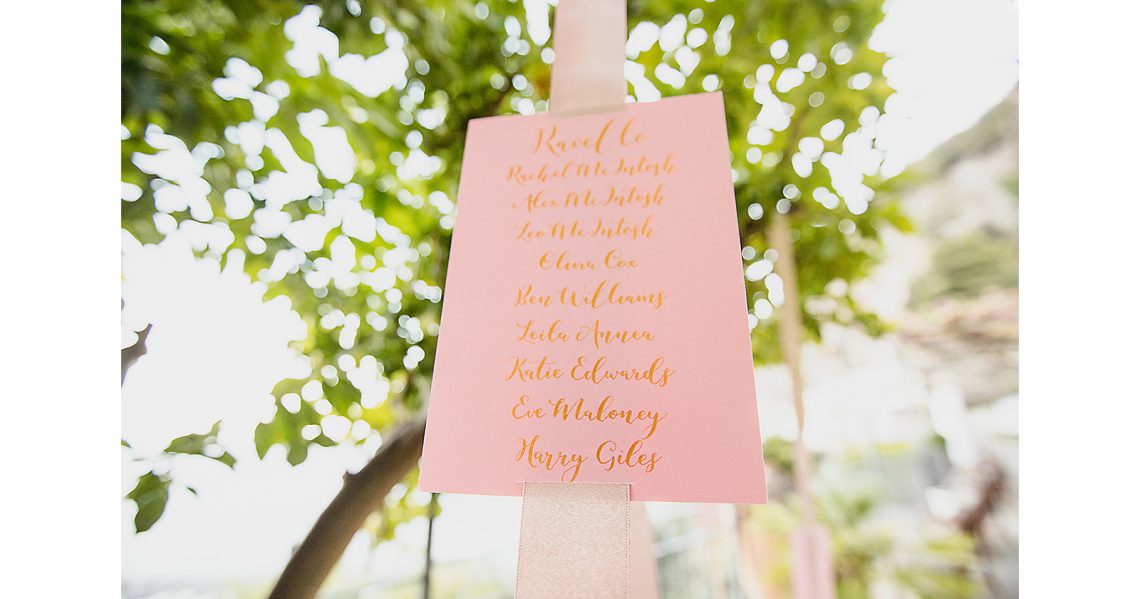 Ravello
Rachel McIntosh
Alex McIntosh
Leo McIntosh
Cox
Ben Williams
Leila Annea
Katie Edwards
Eve Maloney
Harry Giles